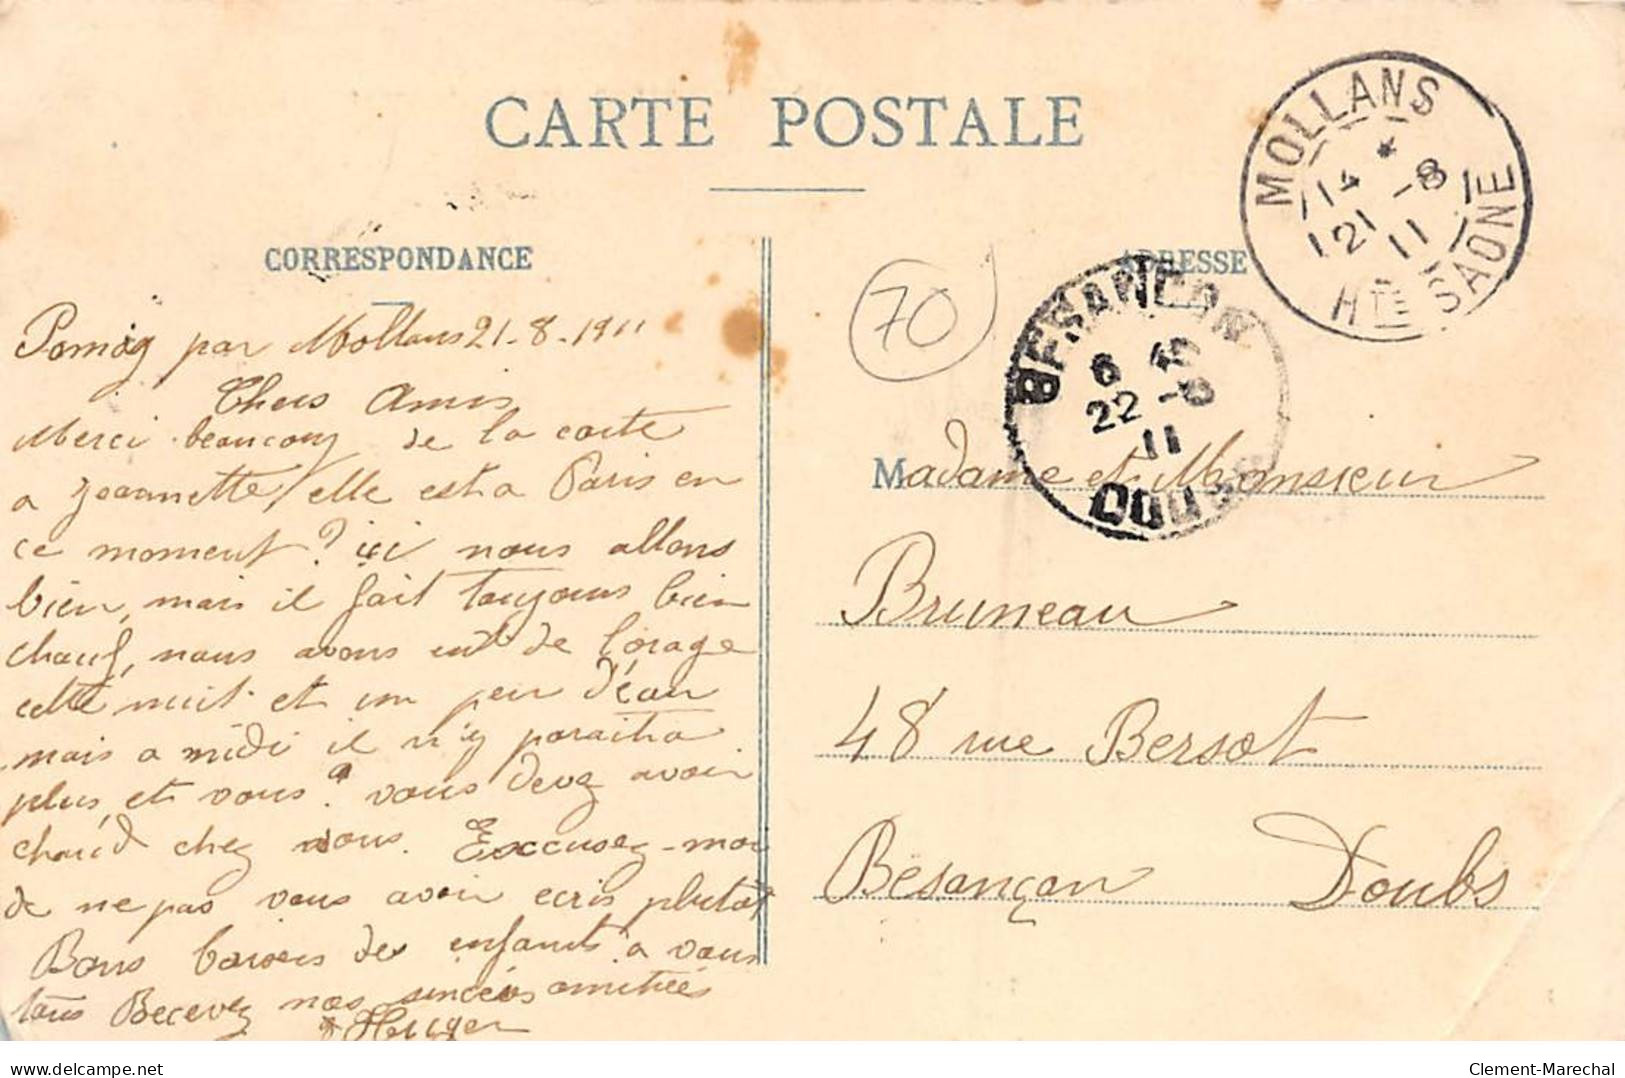 CARTE POSTALE
CORRESPONDANCE
ADRESSE
MOLLANS
14 * 21 -8 11
Hte SAONE
BESANCON
6 10
22 -8
11
DOUBS
70
Pomoy par Mollans 21-8-1911
Chers Amis
Merci beaucoup de la carte
a Jeannette, elle est a Paris en
ce moment? ici nous allons
bien, mais il fait toujours bien
chaud, nous avons eut de l'orage
cette nuit et un peu d'eau
mais a midi il n'y paraitra
plus, et vous? vous devez avoir
chaud chez vous. Excusez-moi
de ne pas vous avoir ecris plutôt
Bons baisers des enfants a vous
tous Recevez nos sincères amitiés
Madame et Monsieur
Bruneau
48 rue Bersot
Besançon Doubs
delcampe.net
Clement-Marechal